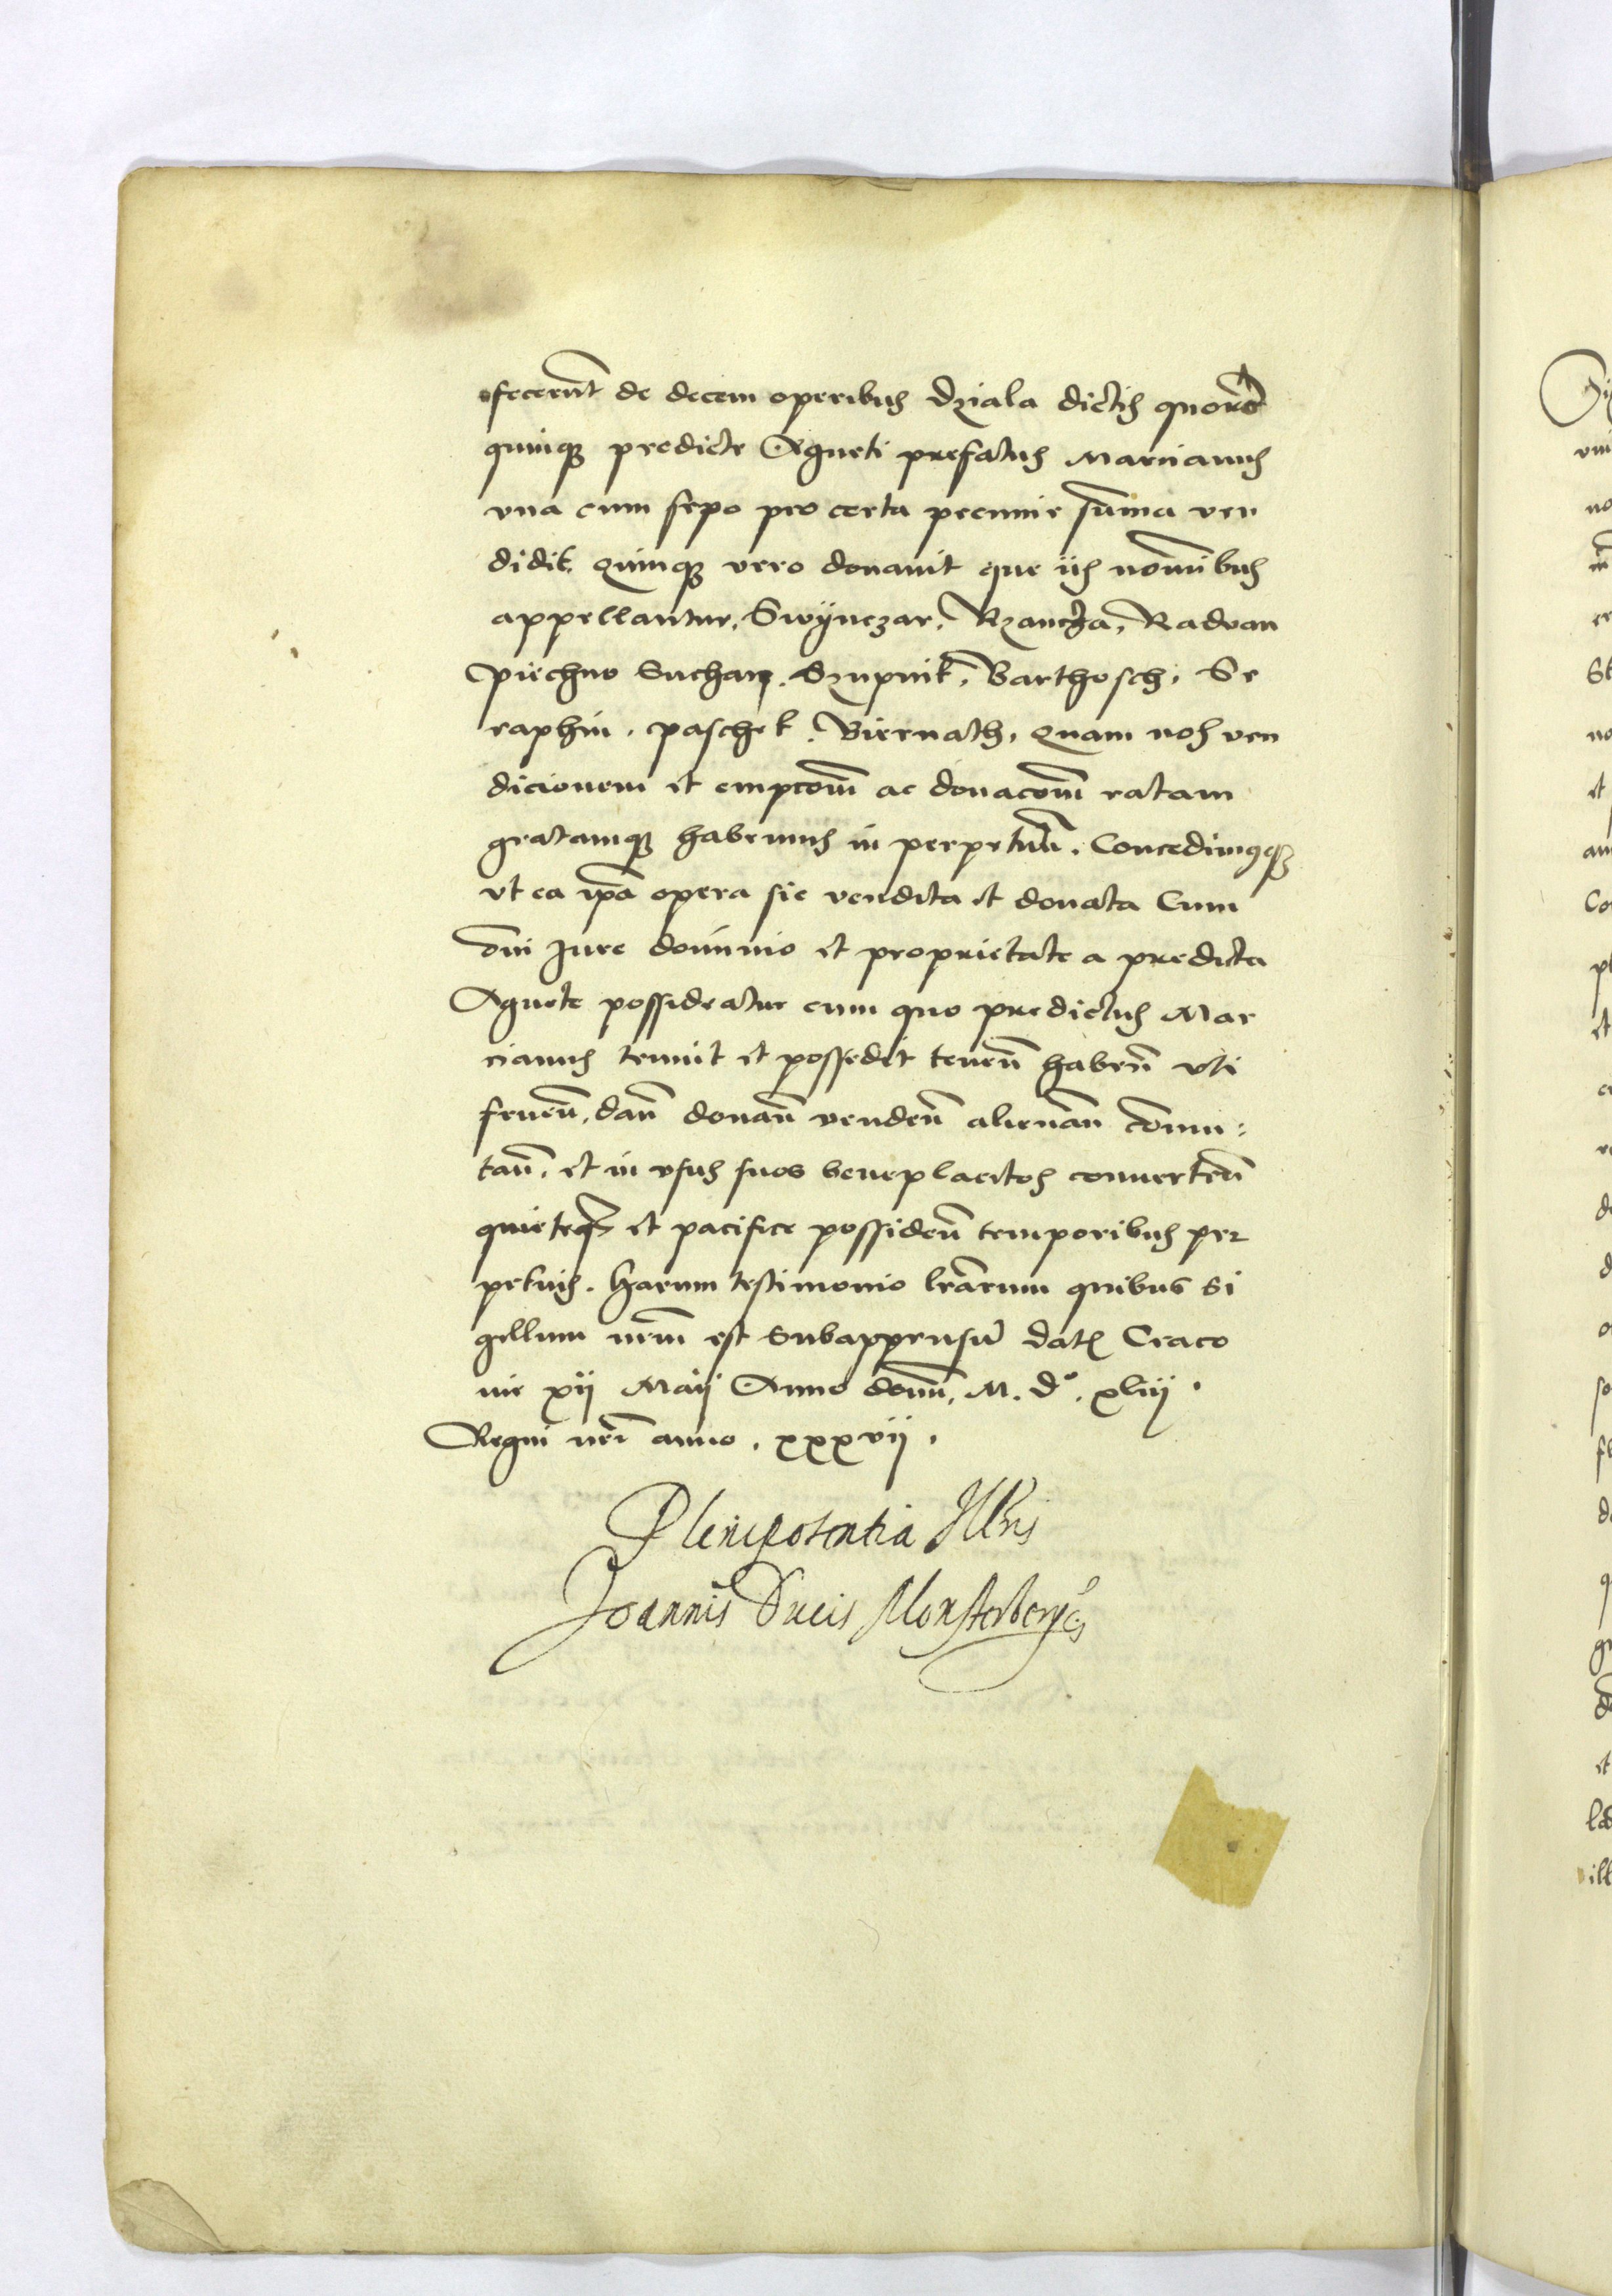 fecerūt de decem operibus dziala dictis quorū
quinqʒ predicte Agneti prefatus Marcianus
vna cum sepo pro certa pecunie sūma ven
didit. quinqʒ vero donauit que iis nomībus
appellantur. Swÿnczar. Rzanczka. Radvan
Piechno Suchan. Szupnik. Barthosch. Se
raphin. Paschek. Biernath. quam nos ven
dicionem et empcōm ac donacōm ratam
gratamqʒ habemus in perpetuū. Concedimusqʒ
vt ea ip̄a opera sic vendita et donata Cum
om̄i Jure dominio et proprietate a predicta
Agnete possideatur cum quo predictus Mar
cianus tenuit et possedit tenen̄ haben̄ vti
fruen̄. dan̄ donan̄ venden̄ alienan̄ cōmu:
tan̄. et in vsus suos beneplacitos conuerten̄
quieteqʒ et pacifice possiden̄ temporibus per
petuis. Harum testimonio lr̄arum quibus si
gillum nr̄m est subappensū datᷓ Craco
uie xii Maij Anno domī. M. dº. xliij.
Regni nrī anno. xxxvij.
Plenipotentia Illris
Joannis Ducis Monsterberge͂n